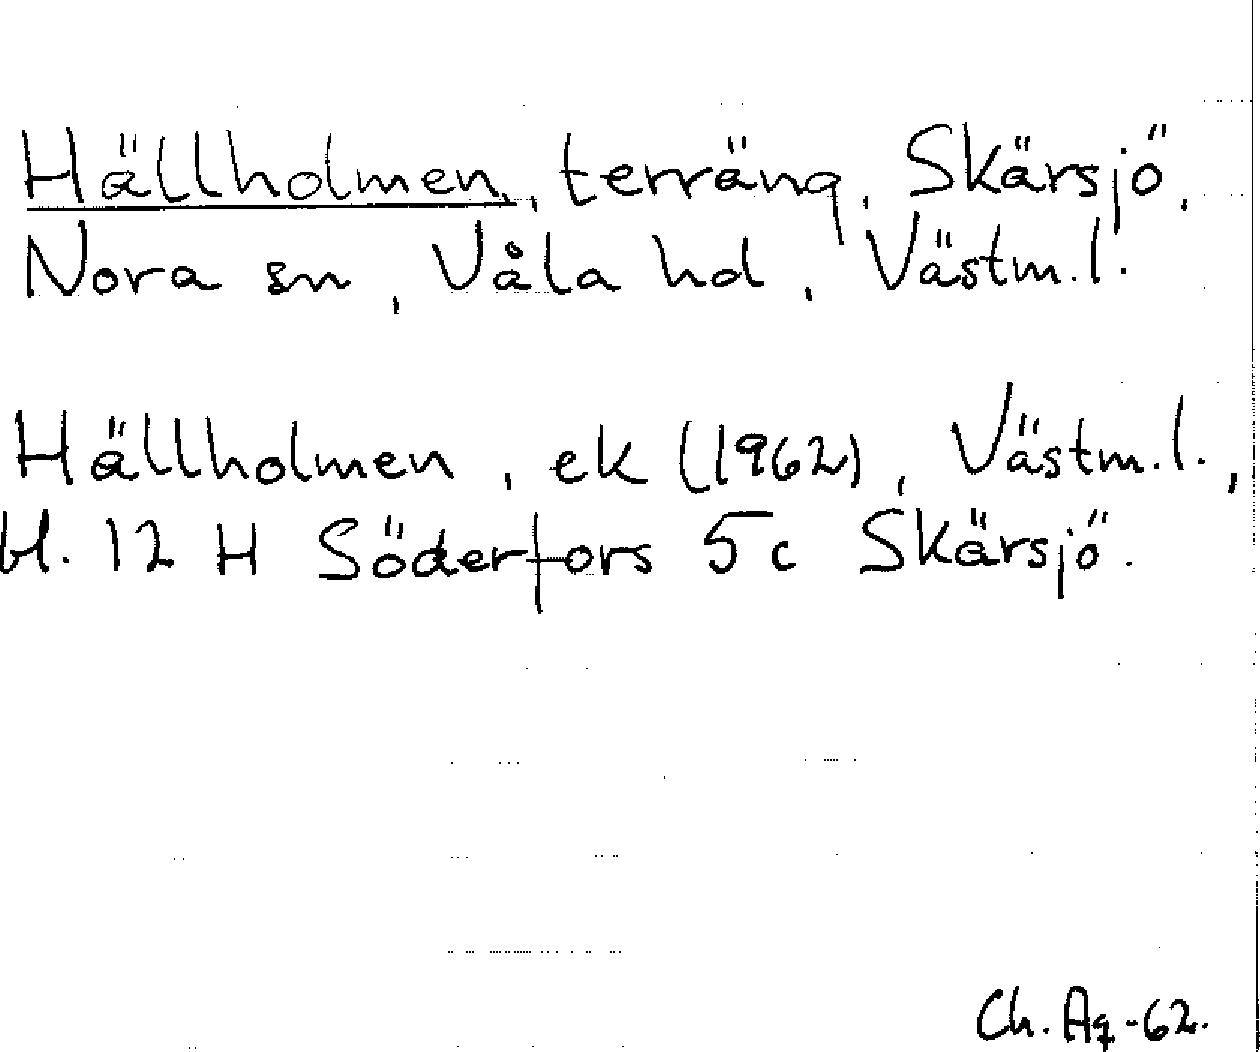 Hällholmen, terräng, Skärsjö,
Nora sn, Våla hd, Västm.l.
Hällholmen, ek (1962), Västm.l.,
bl. 12 H Söderfors 5c Skärsjö.
Ch. Ag -62.